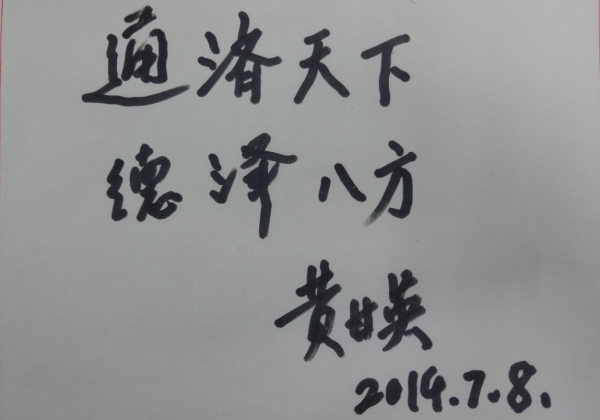 通济天下
德泽八方
黄甘英
2014.7.8.